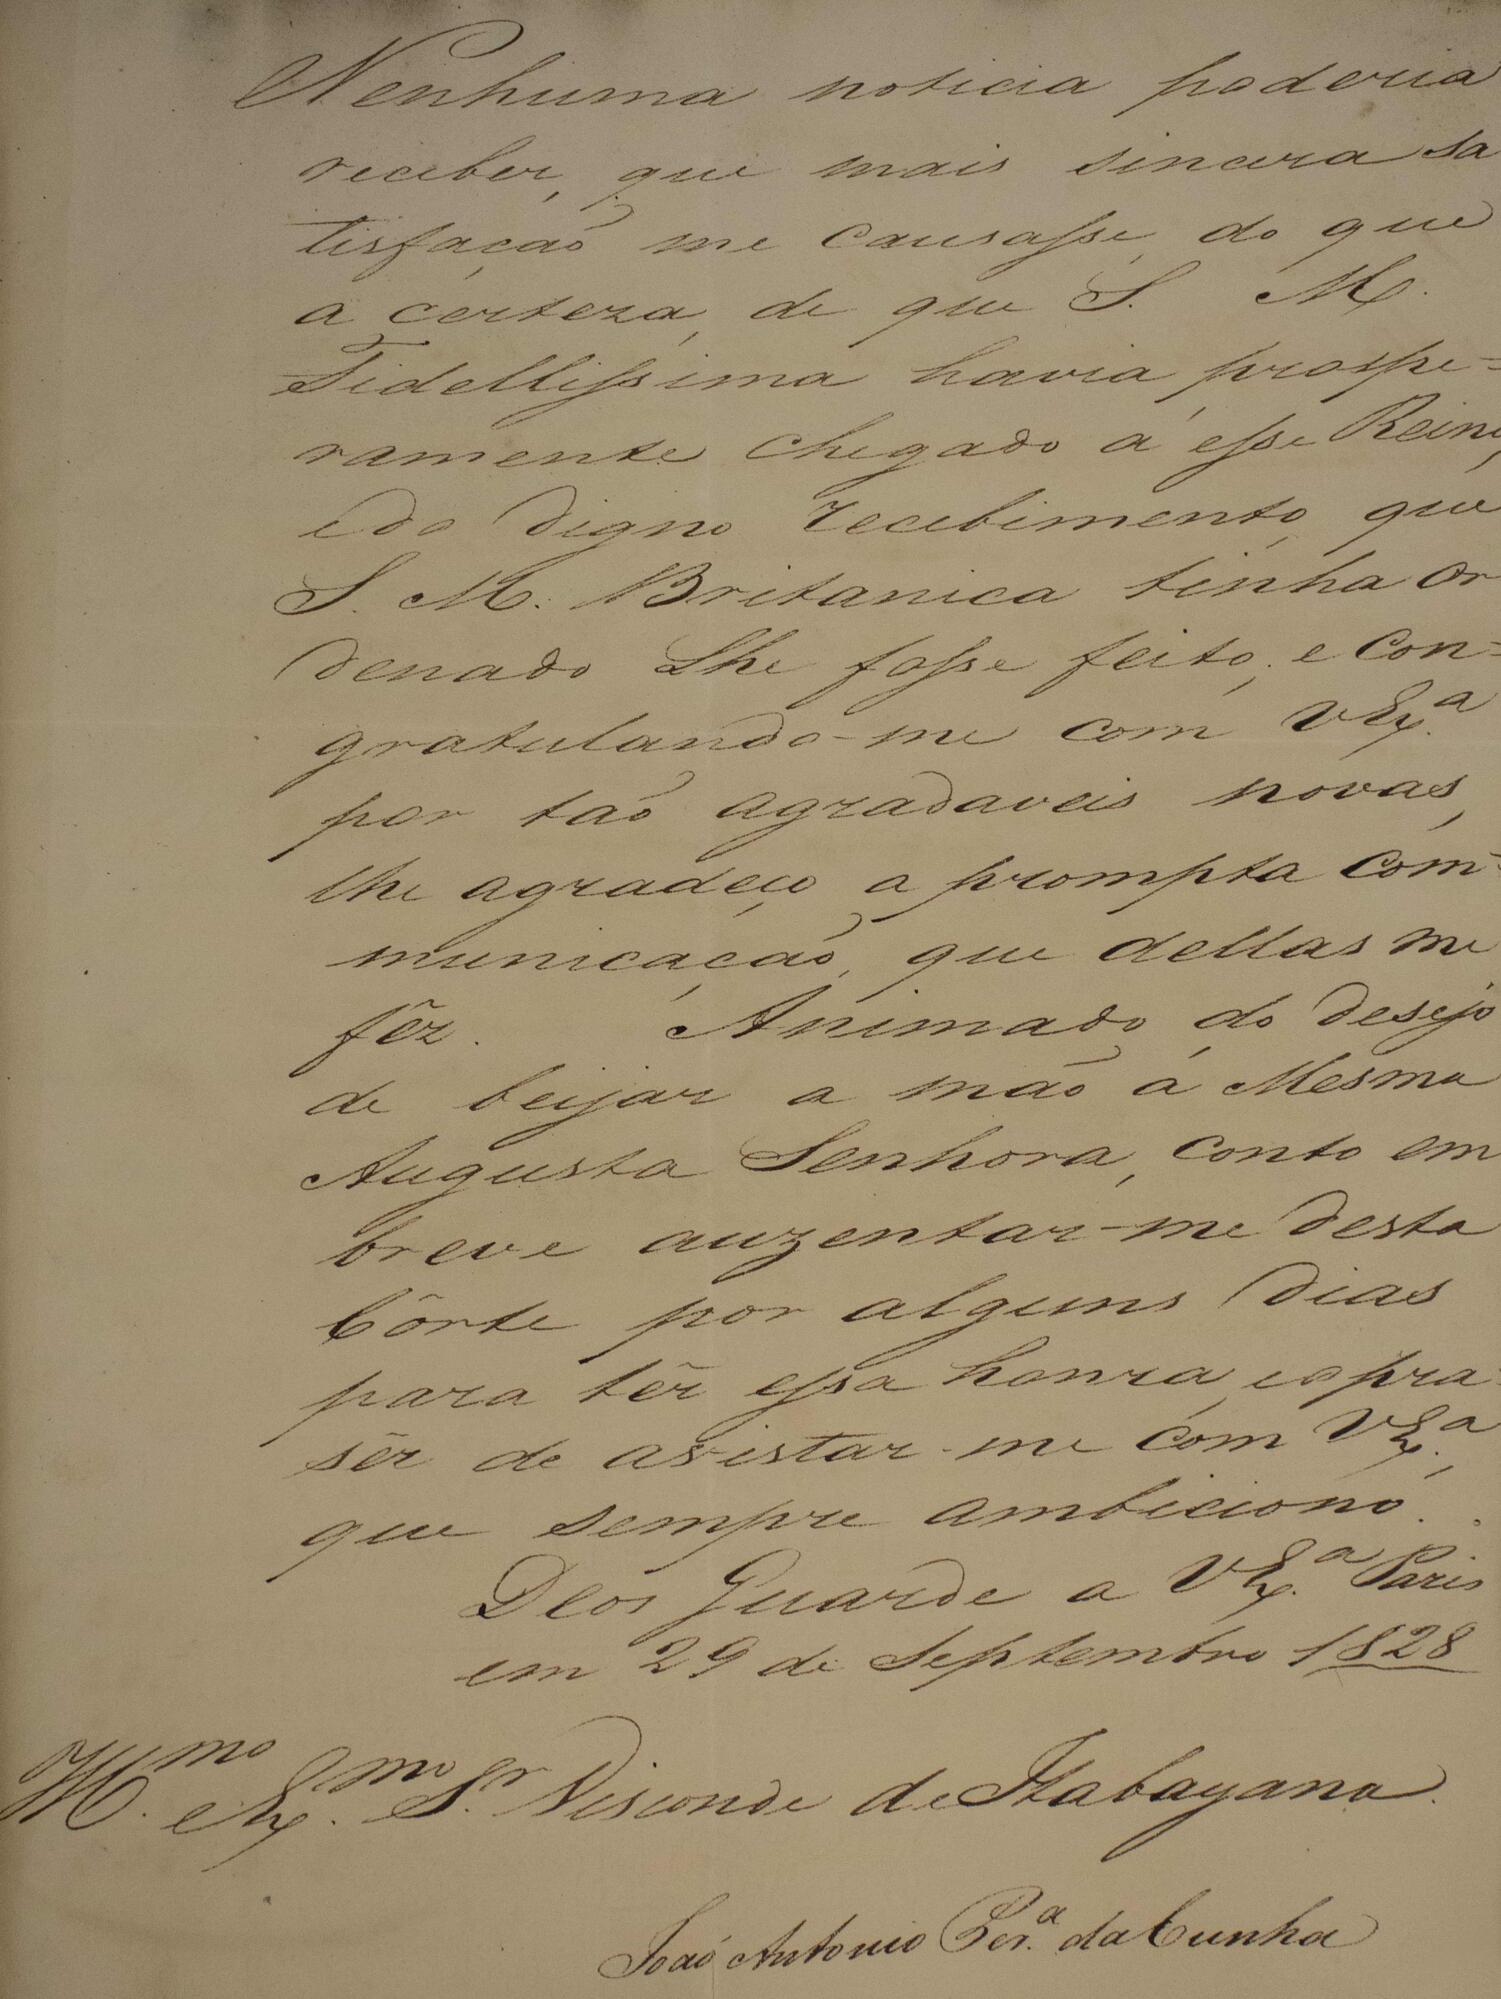 Nenhuma noticia poderia
receber, que mais sincera sa
tisfação me causasse, do que
a certeza, de que S. M.
Fidellissima havia prospe=
ramente chegado á esse Reino,
e do digno recebimento, que
S. M. Britanica tinha or
denado Lhe fosse feito, e con=
gratulando-me com VEx.ª
por taõ agradaveis novas,
lhe agradeço a prompta com=
municação, que dellas me
fêz. Animado do desejo
de beijar a maõ á Mesma
Augusta Senhora, conto em
breve auzentar-me desta
Côrte por alguns dias
para têr essa honra, e o pra=
sêr de avistar-me com VEx.ª,
que sempre ambiciono.
Deos Guarde a VEx.ª Paris
em 29 de Septembro 1828
Ill.mo e Ex.mo S.r Visconde de Itabayana.
Joaõ Antonio Per.ª da Cunha